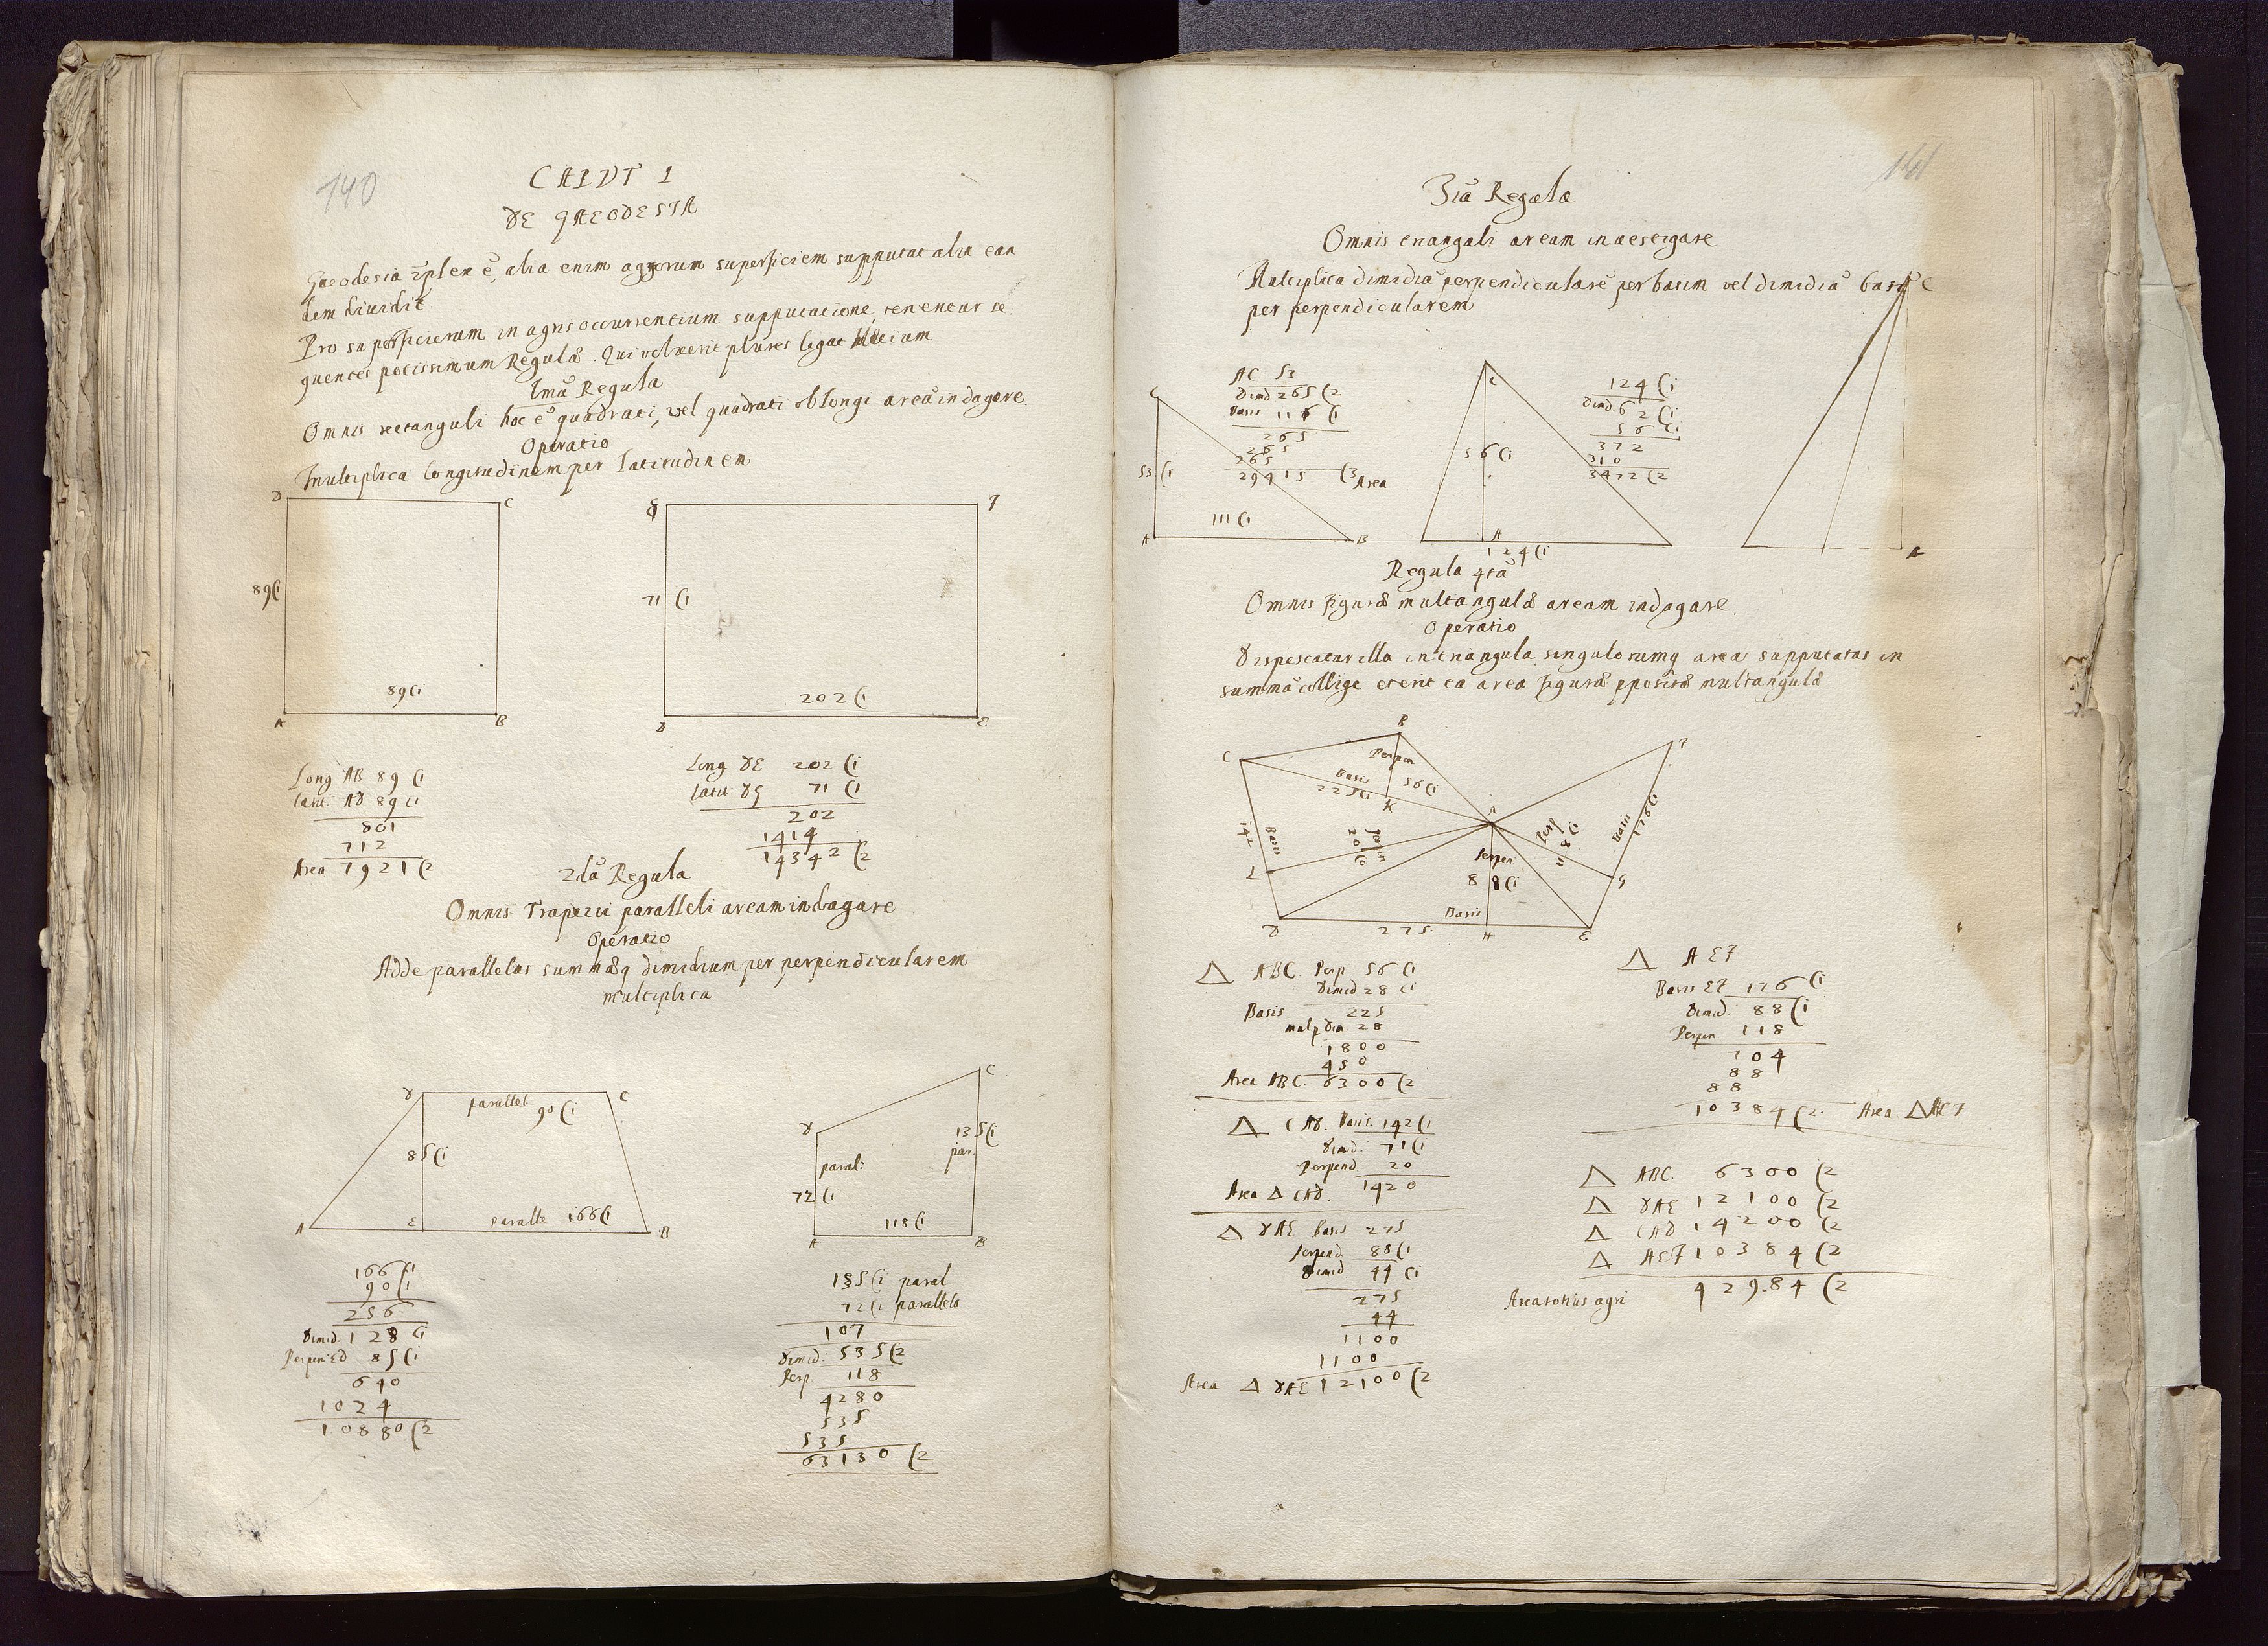 140
CAPVT 1
DE GAEODESIA
Gaeodesia 2plex ẽ, alia enim agrorum superficiem supputat alia ean
dem diuidit
Pro superficierum in agris occurrentium supputatione, tenentur se
quentes potissimum Regulæ. Qui voluerit plures legat
1mã Regula
Omnis rectanguli hoc ẽ quadrati, vel quadrati oblongi areã indagare
Operatio
Multiplica longitudinem per latitudinem
D C
89(1
89(1
A B
G F
71 (1
202 (1
D E
Long AB 89 (1
Latit. AD 89 (1
801
712
Area 7921 (2
Long DE 202 (1
Latit DG 71 (1
202
1414
14342 (2
2dã Regula
Omnis Trapezii paralleli aream indagare
Operatio
Adde parallelas summæq dimidium per perpendicularem
multiplica
D C
parallel 90 (1
85(1
A E paralle 166(1 B
C
D
135(1
par.
paral:
72(1
118(1
A B
166(1
90(1
256
Dimid. 128 (1
Perpen ED 85(1
640
1024
10880(2
135(1 paral
72(1 parallela
107
Dimid: 535(2
Perp 118
4280
535
535
63130 (2
141
3iã Regula
Omnis trianguli aream inuestigare
Multiplica dimidiã perpendicularẽ per basim vel dimidiã basim
per perpendicularem
C
AC 53
Dimd 265 (2
Basis 111 (1
265
265
265
29415 (3 Area
53(1
111 (1
A B
C
56(1
A
124(1
124 (1
Dimd. 62 (1
56 (1
372
310
3472 (2
C
A
Regula 4tã
Omnis figuræ multangulæ aream indagare.
Operatio
Dispescatur illa in triangula, singulorumq areas supputatas in
summã collige et erit ea area figuræ ppositæ multangulæ
B
C
F
Perpen
56(1
Basis
225(1
K
A
Basis
142
Perpen
20(1
Perp
118(1
Basis
176(1
L
Perpen
88(1
G
Basis
D 275 H E
△ ABC Perp 56 (1
Dimid 28 (1
Basis 225
mulp Dim 28
1800
450
Area ABC. 6300 (2
△ CAD. Basis. 142(1
Dimid. 71(1
Perpend 20
Area △ CAD. 1420
△ DAE Basis 275
Perpend 88(1
Dimid 44 (1
275
44
1100
1100
Area △ DAE 12100 (2
△ AEF
Basis EF 176 (1
Dimid. 88(1
Perpen 118
704
88
88
10384 (2. Area △ AEF
△ ABC. 6300 (2
△ DAE 12100 (2
△ CAD 14200 (2
△ AEF 10384 (2
Area totius agri 42984 (2